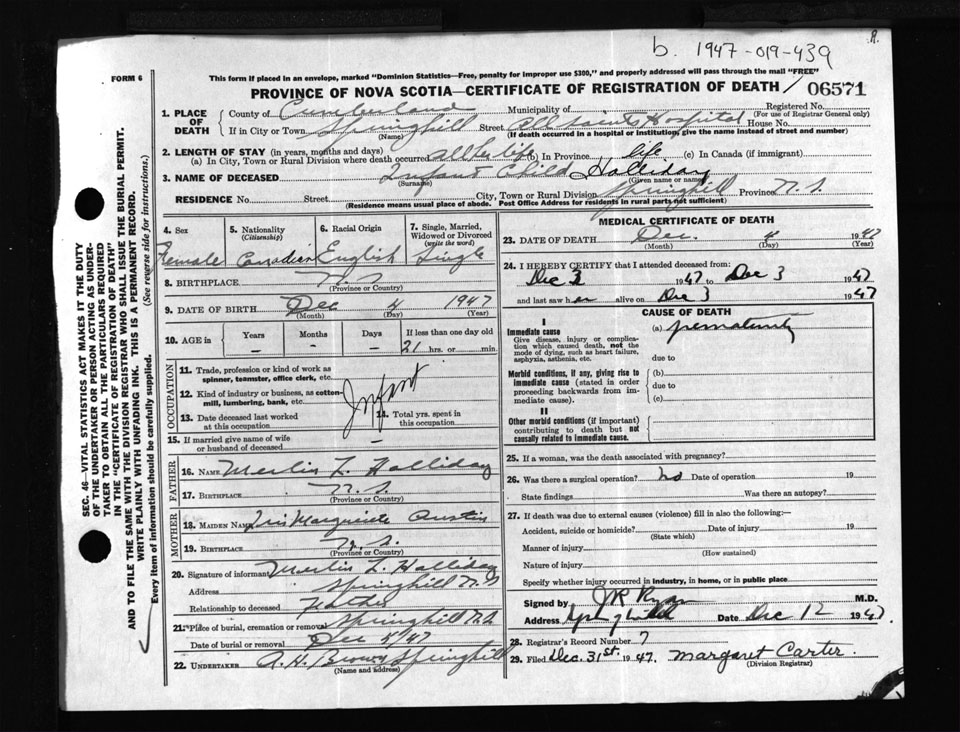 R.
b. 1947-019-439
FORM 6
This form if placed in an envelope, marked "Dominion Statistics—Free, penalty for improper use $300," and properly addressed will pass through the mail "FREE"
PROVINCE OF NOVA SCOTIA—CERTIFICATE OF REGISTRATION OF DEATH / 06571
1. PLACE OF DEATH
County of Cumberland Municipality of Registered No.
(For use of Registrar General only)
If in City or Town Springhill Street All Saints Hospital House No.
(Name) (If death occurred in a hospital or institution, give the name instead of street and number)
2. LENGTH OF STAY (in years, months and days)
(a) In City, Town or Rural Division where death occurred all her life (b) In Province life (c) In Canada (if immigrant)
3. NAME OF DECEASED Infant Child Halliday
(Surname) (Given name or names)
RESIDENCE No. Street City, Town or Rural Division Springhill Province N.S.
(Residence means usual place of abode. Post Office Address for residents in rural parts not sufficient)
4. Sex
Female
5. Nationality
(Citizenship)
Canadian
6. Racial Origin
English
7. Single, Married, Widowed or Divorced
(write the word)
Single
8. BIRTHPLACE N.S.
(Province or Country)
9. DATE OF BIRTH Dec 4 1947
(Month) (Day) (Year)
10. AGE in Years Months Days If less than one day old
- - - 21 hrs. or min.
OCCUPATION
11. Trade, profession or kind of work as spinner, teamster, office clerk, etc.
12. Kind of industry or business, as cotton-mill, lumbering, bank, etc.
Infant
13. Date deceased last worked at this occupation
14. Total yrs. spent in this occupation
15. If married give name of wife or husband of deceased -
FATHER
16. NAME Merlin L. Halliday
17. BIRTHPLACE N.S.
(Province or Country)
MOTHER
18. MAIDEN NAME Iris Marguerite Austin
19. BIRTHPLACE N.S.
(Province or Country)
20. Signature of informant Merlin L. Halliday
Address Springhill N.S
Relationship to deceased Father
21. Place of burial, cremation or removal Springhill N.S.
Date of burial or removal Dec 4/47
22. UNDERTAKER A. H. Brown Springhill
(Name and address)
MEDICAL CERTIFICATE OF DEATH
23. DATE OF DEATH Dec. 4 1947
(Month) (Day) (Year)
24. I HEREBY CERTIFY that I attended deceased from:
Dec 3 1947 to Dec 3 1947
and last saw her alive on Dec 3 1947
CAUSE OF DEATH
I
Immediate cause
Give disease, injury or complication which caused death, not the mode of dying, such as heart failure, asphyxia, asthenia, etc.
(a) prematurity
due to
Morbid conditions, if any, giving rise to immediate cause (stated in order proceeding backwards from immediate cause).
(b)
due to
(c)
II
Other morbid conditions (if important) contributing to death but not causally related to immediate cause.
25. If a woman, was the death associated with pregnancy?
26. Was there a surgical operation? no Date of operation 19
State findings Was there an autopsy?
27. If death was due to external causes (violence) fill in also the following:—
Accident, suicide or homicide? Date of injury 19
(State which)
Manner of injury
(How sustained)
Nature of injury
Specify whether injury occurred in industry, in home, or in public place
Signed by J R Ryan M.D.
Address Springhill Date Dec 12 1947
28. Registrar's Record Number 7
29. Filed Dec. 31st. 1947. Margaret Carter.
(Division Registrar)
SEC. 46—VITAL STATISTICS ACT MAKES IT THE DUTY
OF THE UNDERTAKER OR PERSON ACTING AS UNDER-
TAKER TO OBTAIN ALL THE PARTICULARS REQUIRED
IN THE "CERTIFICATE OF REGISTRATION OF DEATH"
AND TO FILE THE SAME WITH THE DIVISION REGISTRAR WHO SHALL ISSUE THE BURIAL PERMIT.
WRITE PLAINLY WITH UNFADING INK. THIS IS A PERMANENT RECORD.
Every item of information should be carefully supplied. (See reverse side for instructions.)